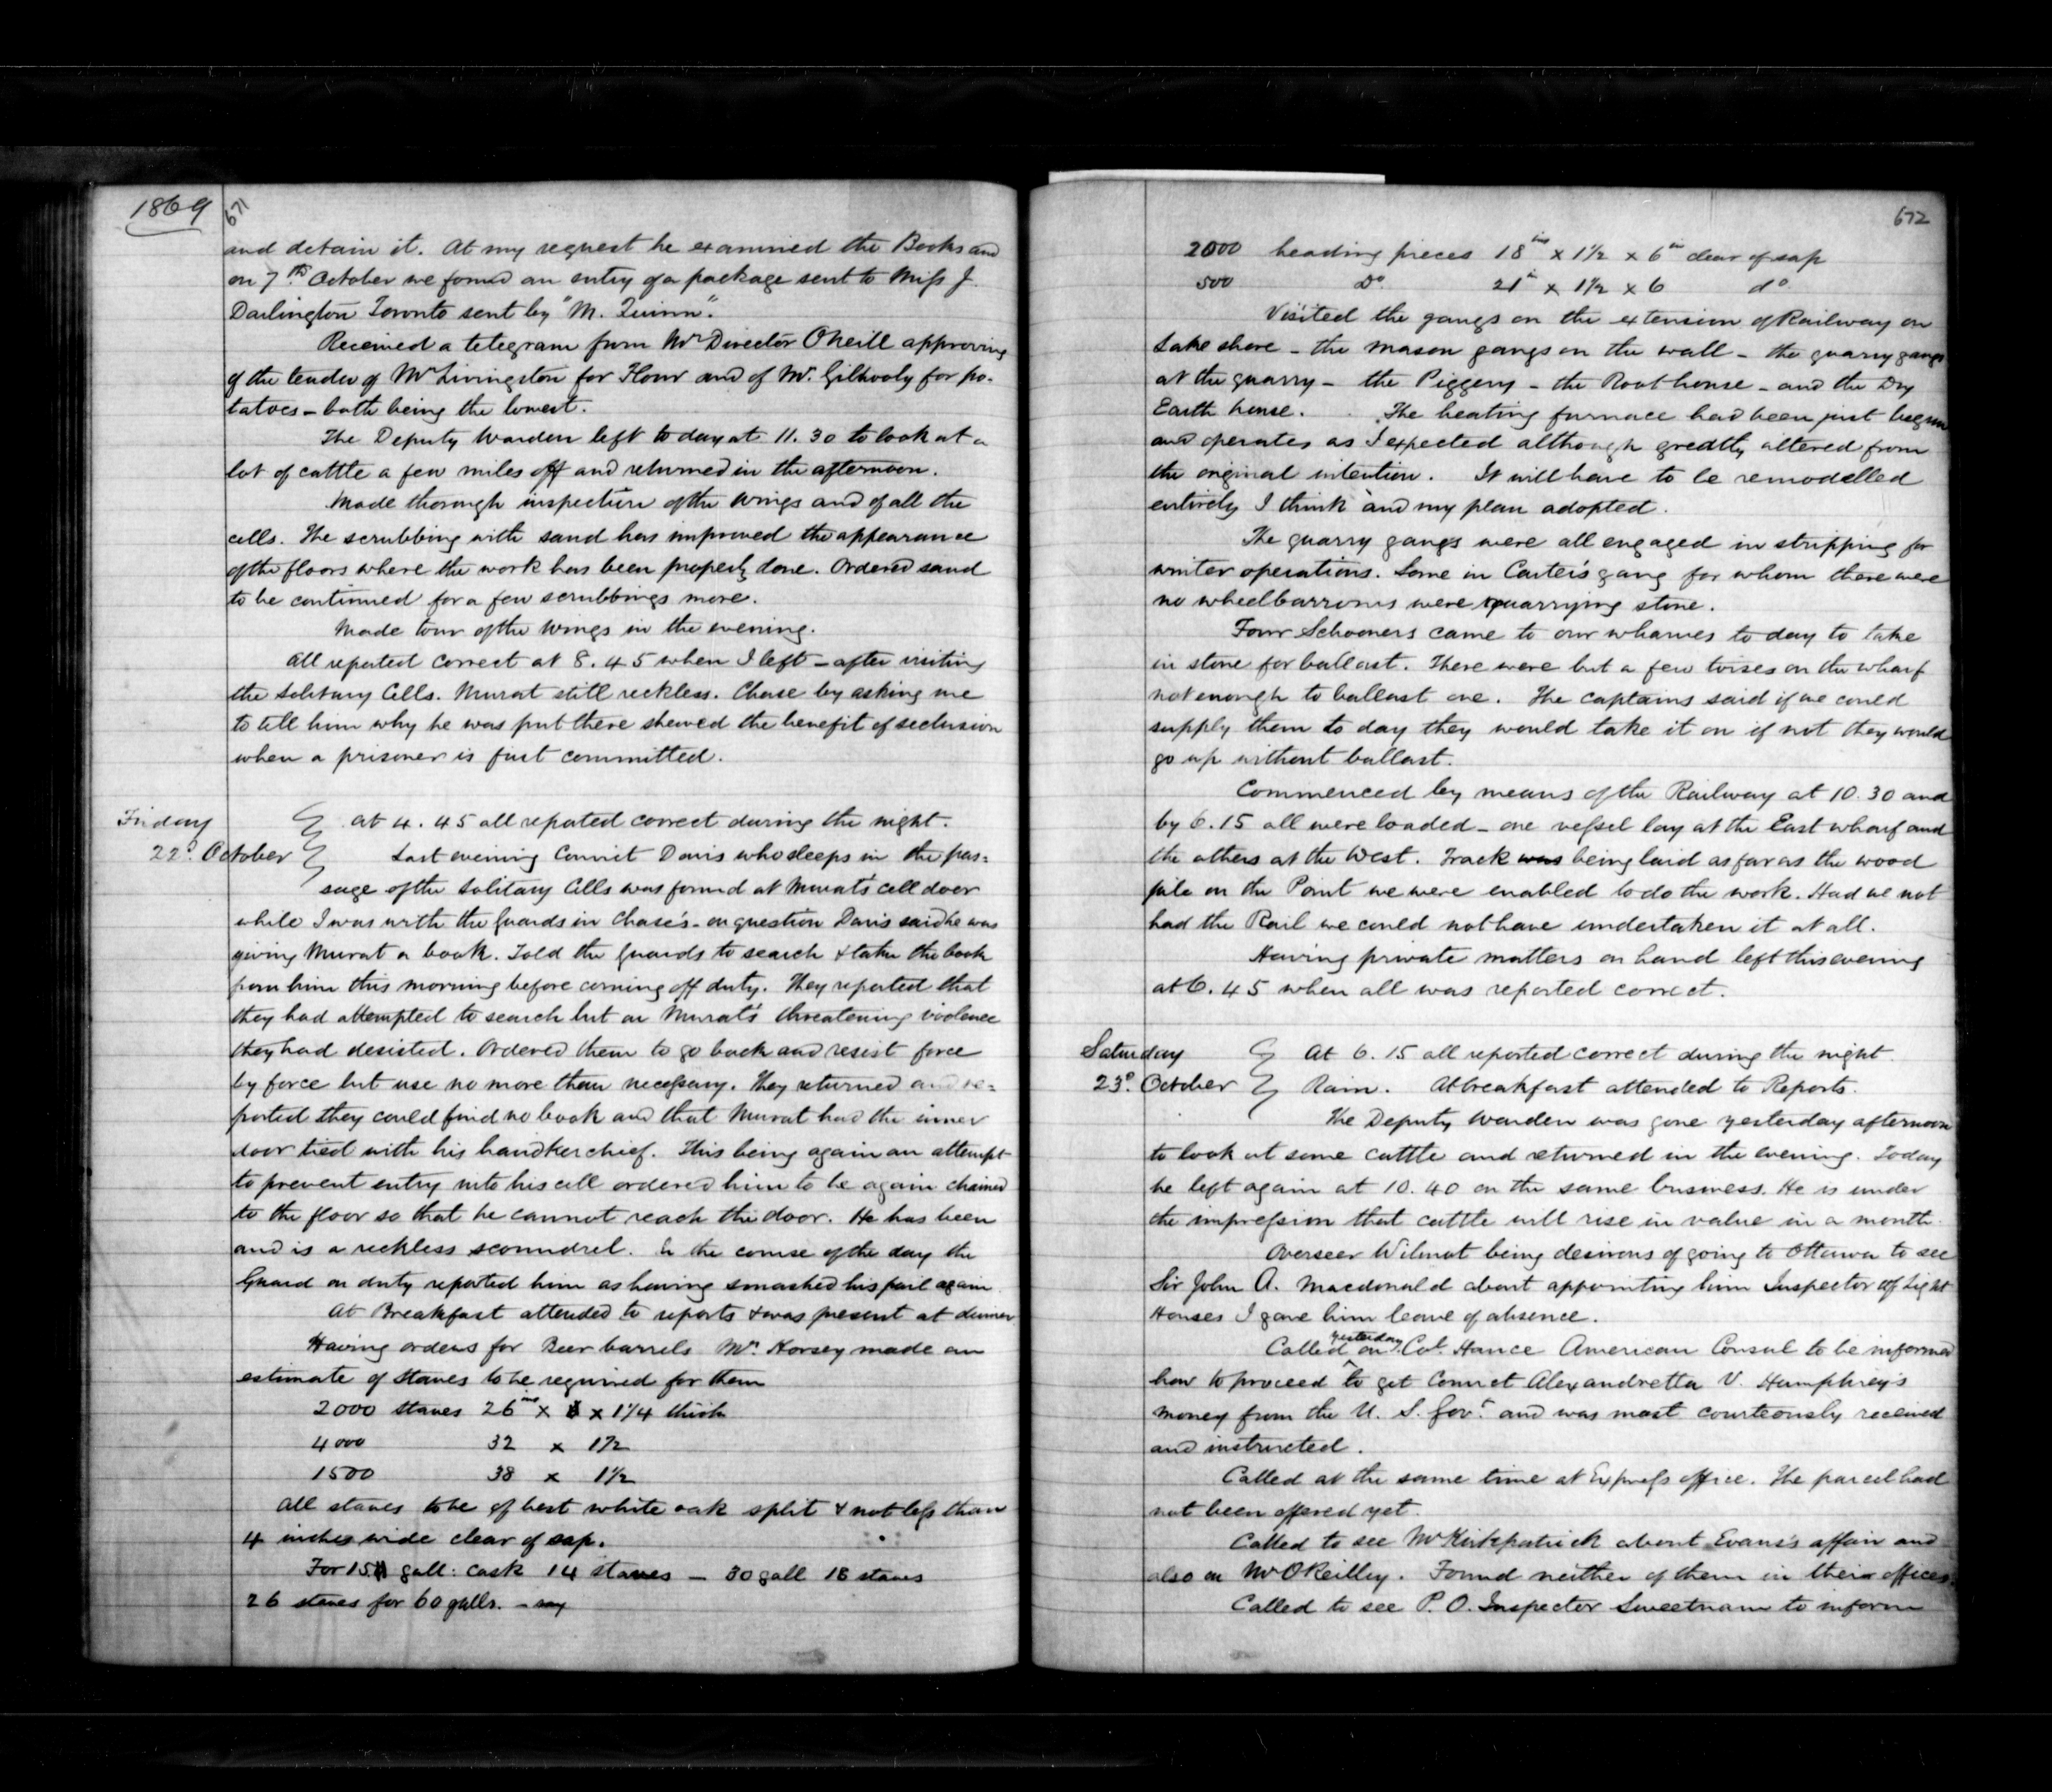 1869
671
and detain it. At my request he examined the Books and
on 7th October we found an entry of a package sent to Miss J.
Darlington Toronto sent by "M. Quinn".
Received a telegram from Mr Director ONeill approving
of the tender of Mr Livingston for Flour and of Mr. Gilhooly for po-
tatoes - both being the lowest.
The Deputy Warden left to day at 11.30 to look at a
lot of cattle a few miles off and returned in the afternoon.
Made thorough inspection of the wings and of all the
cells. The scrubbing with sand has improved the appearance
of the floors where the work has been properly done. Ordered sand
to be continued for a few scrubbings more.
Made tour of the Wings in the evening.
All reported correct at 8.45 when I left - after visiting
the Solitary Cells. Murat still reckless. Chase by asking me
to tell him why he was put there shewed the benefit of seclusion
when a prisoner is first committed.
Friday
22d. October
At 4.45 all reported correct during the night.
Last evening Convict Davis who sleeps in the pas=
sage of the Solitary Cells was found at Murat's cell door
while I was with the Guards in Chase's - on question Davis said he was
giving Murat a book. Told the Guards to search & take the book
from him this morning before coming off duty. They reported that
they had attempted to search but on Murat's threatening violence
they had desisted. Ordered them to go back and resist force
by force but use no more than necessary. They returned and re=
ported they could find no book and that Murat had the inner
door tied with his handkerchief. This being again an attempt
to prevent entry into his cell ordered him to be again chained
to the floor so that he cannot reach the door. He has been
and is a reckless scoundrel. In the course of the day the
Guard on duty reported him as having smashed his pail again.
At Breakfast attended to reports & was present at dinner
Having orders for Beer barrels Mr. Horsey made an
estimate of staves to be required for them
2000 staves 26 ins x x 1 1/4 thick
4000 32 x 1 1/2
1500 38 x 1 1/2
All staves to be of best white oak split & not less than
4 inches wide clear of sap.
For 15 gall: cask 14 staves - 30 gall 18 staves
26 staves for 60 galls. - say
672
2000 heading pieces 18 ins x 1 1/2 x 6 in clear of sap
500 Do 21 in x 1 1/2 x 6 do
Visited the gangs on the extension of Railway on
Lake shore - the mason gangs on the wall - the quarry gangs
at the quarry - the Piggery - the Root house - and the Dry
Earth house. The heating furnace had been just begun
and operates as I expected although greatly altered from
the original intention. It will have to be remodelled
entirely I think and my plan adopted.
The quarry gangs were all engaged in stripping for
winter operations. Some in Carter's gang for whom there were
no wheelbarrows were quarrying stone.
Four Schooners came to our wharves to day to take
in stone for ballast. There were but a few toises on the wharf
not enough to ballast one. The captains said if we could
supply them to day they would take it on if not they would
go up without ballast.
Commenced by means of the Railway at 10.30 and
by 6.15 all were loaded - one vessel lay at the East wharf and
the others at the West. Track was being laid as far as the wood
pile on the Point we were enabled to do the work. Had we not
had the Rail we could not have undertaken it at all.
Having private matters on hand left this evening
at 6.45 when all was reported correct.
Saturday
23d. October
At 6.15 all reported correct during the night.
Rain. At breakfast attended to Reports.
The Deputy Warden was gone yesterday afternoon
to look at some cattle and returned in the evening. Today
he left again at 10.40 on the same business. He is under
the impression that cattle will rise in value in a month.
Overseer Wilmot being desirous of going to Ottawa to see
Sir John A. Macdonald about appointing him Inspector of Light
Houses I gave him leave of absence.
Called yesterday on Col. Hance American Consul to be informed
how to proceed to get Convict Alexandretta V. Humphrey's
money from the U. S. Govt. and was most courteously received
and instructed.
Called at the same time at Express office. The parcel had
not been offered yet.
Called to see Mr Kirkpatrick about Evans's affair and
also on Mr OReilly. Found neither of them in their offices.
Called to see P. O. Inspector Sweetnam to inform